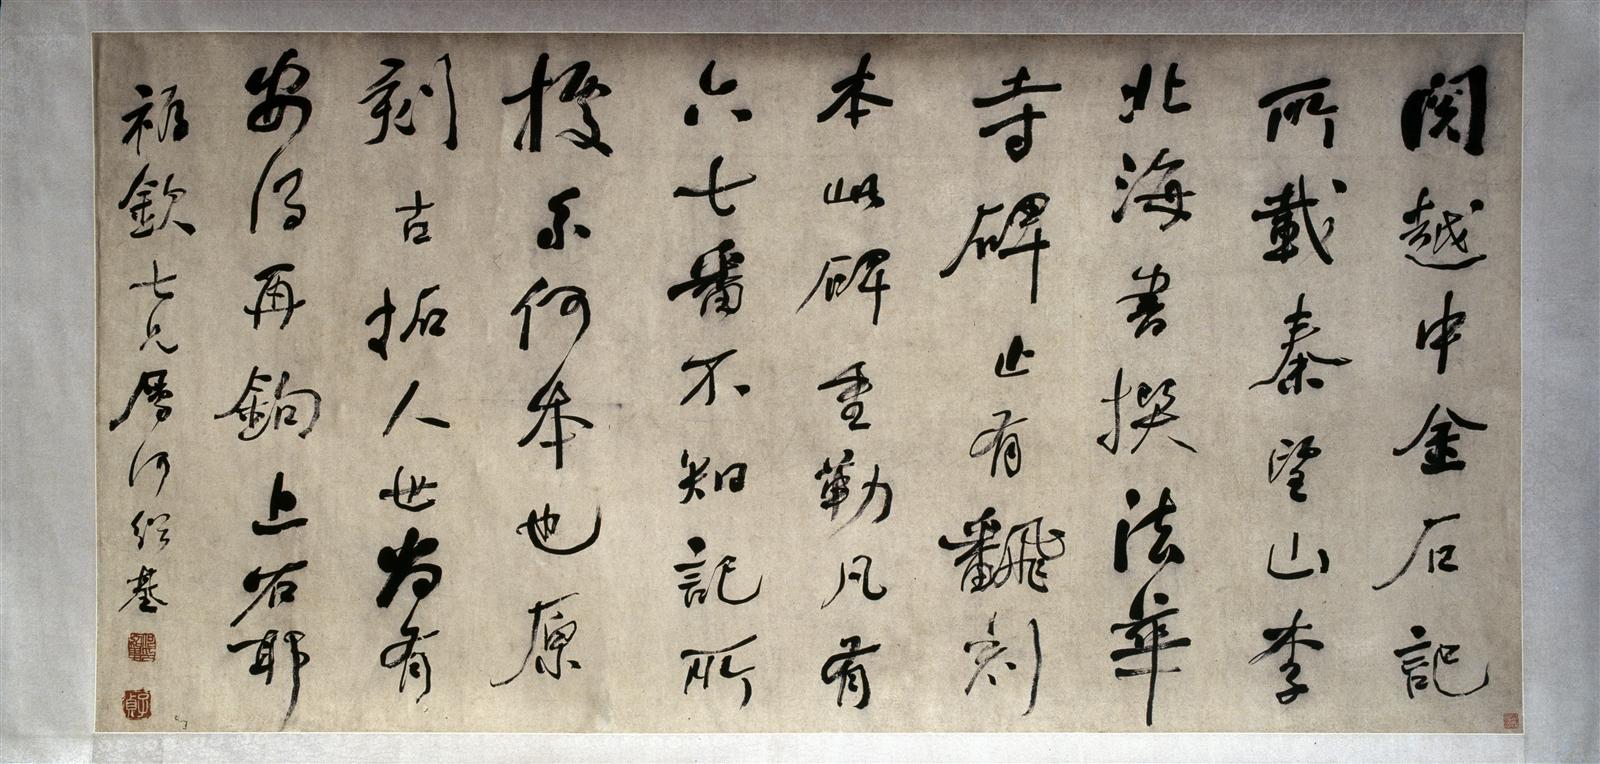 閱越中金石記
所載秦望山李
北海書撰法華
寺碑止有翻刻
本此碑重勒凡有
六七番不知記所
援系何本也原
刻古拓人世尚有
安得再鉤上石耶
七兄屬何紹基